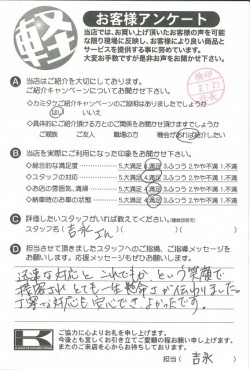 軽
お客様アンケート
当店では、お買い上げ頂いたお客様の声を可能
な限り現場に反映し、お客様により良い商品と
サービスを提供する事に努めています。
大変お手数ですが是非お声をお聞かせ下さい。
A 当店はご紹介を大切にしております。
ご紹介キャンペーンについてお聞かせ下さい。
◇カミタケご紹介キャンペーンのご説明はありましたでしょうか
はい いいえ
◇具体的にご紹介頂ける方とのご関係をお聞かせ頂けますでしょうか
ご親族 ご友人 職場の方 機会があれば紹介したい
B 当店を実際にご利用になった印象をお聞かせ下さい。
◇総合的な満足度 5.大満足 4.満足 3.ふつう 2.やや不満 1.不満
◇スタッフの対応 5.大満足 4.満足 3.ふつう 2.やや不満 1.不満
◇お店の雰囲気、清掃 5.大満足 4.満足 3.ふつう 2.やや不満 1.不満
◇納車時のお車の状態 5.大満足 4.満足 3.ふつう 2.やや不満 1.不満
C 評価したいスタッフがいれば教えてください。(複数回答可)
スタッフ名( 吉永さん )( )( )
D 担当させて頂きましたスタッフへのご指摘、ご指導メッセージを
お願いします。応援メッセージもぜひお願いします。
迅速な対応と これでもか という笑顔で
接客され とても一生懸命さが伝わりました。
丁寧な対応も安心でき よかったです。
ご協力に心よりお礼を申し上げます。
今後とも宜しくお引き立てご愛顧の程お願い申し上げます。
またのご来店を心からお待ちしております。
担当( 吉永 )